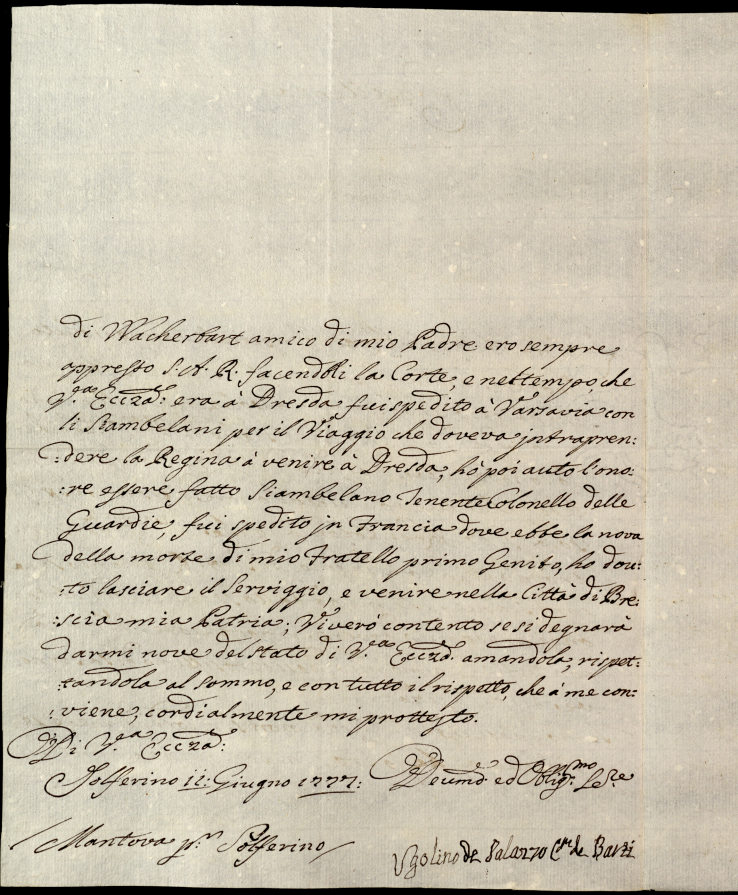 di Wacherbart amico di mio Padre ero sempre
appresso S. A. R. facendoli la Corte, e nel tempo che
V.ra Ecc.za: era à Dresda fui spedito à Varsavia con
li Siambelani per il Viaggio che doveva jntrapren:
:dere la Regina à venire à Dresda, hò poi auto l'ono:
:re essere fatto Siambelano Tenente Colonello delle
Guardie, fui spedito jn Francia dove ebbe la nova
della morte di mio Fratello primo Genito, ho dou:
:to lasciare il Serviggio, e venire nella Città di Bre:
:scia mia Patria; Viverò contento se si degnarà
darmi nove del stato di V.ra Ecc.za. amandola, rispet:
:tandola al sommo, e con tutto il rispetto, che à me con:
:viene, cordialmente mi prottesto.
Di V.ra Ecc.za:
Solferino 11: Giugno 1777: Deum.o ed Oblig.mo Se.re
/Mantova p.r Solferino/
Ugolino de Palazzo C.te de Barzi